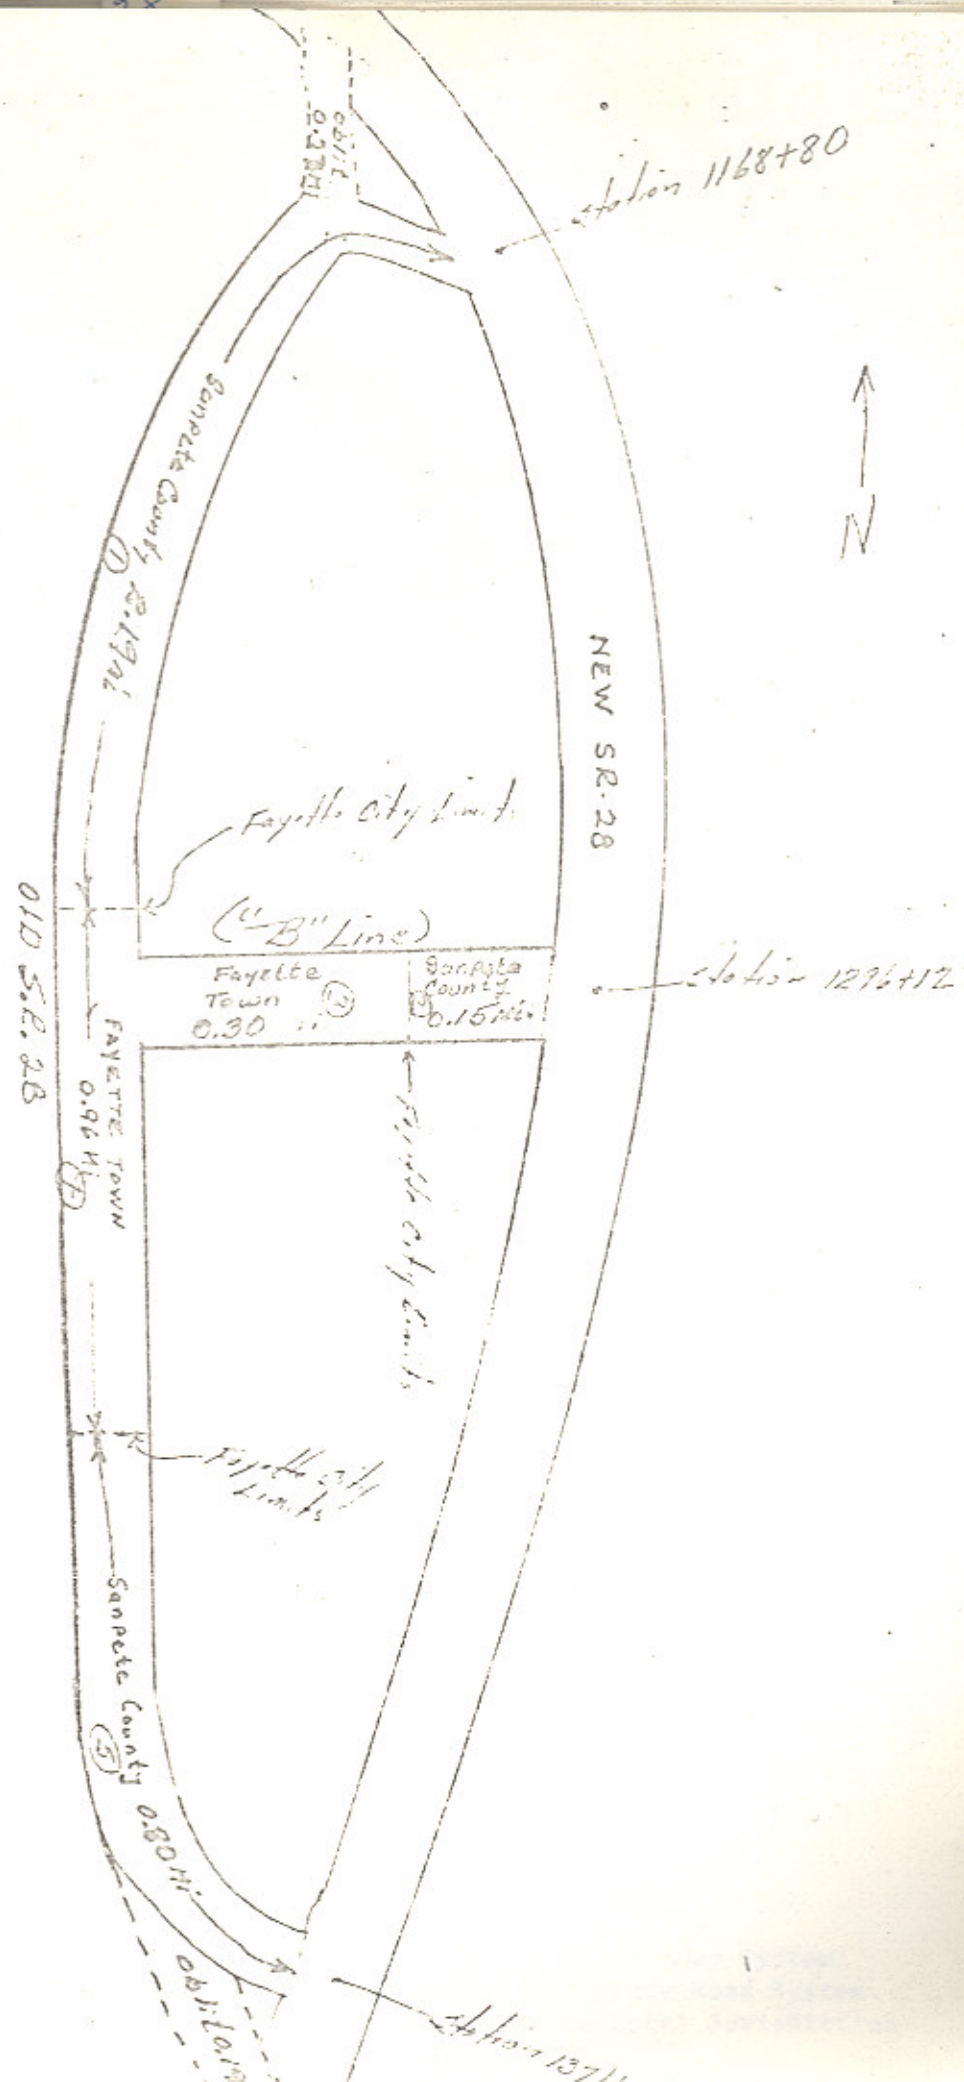 oblit.
0.2 Mi
Station 1168+80
N
Sanpete County 2.19 Mi
1
NEW SR-28
Fayette City Limit
("B" Line)
Fayette
Town
0.30
Sanpete
County
0.15 Mi.
Station 1296+12
OLD S.R. 28
FAYETTE TOWN
0.96 Mi
Fayette City Limits
Fayette City
Limits
Sanpete County 0.80 Mi
5
oblit
Station